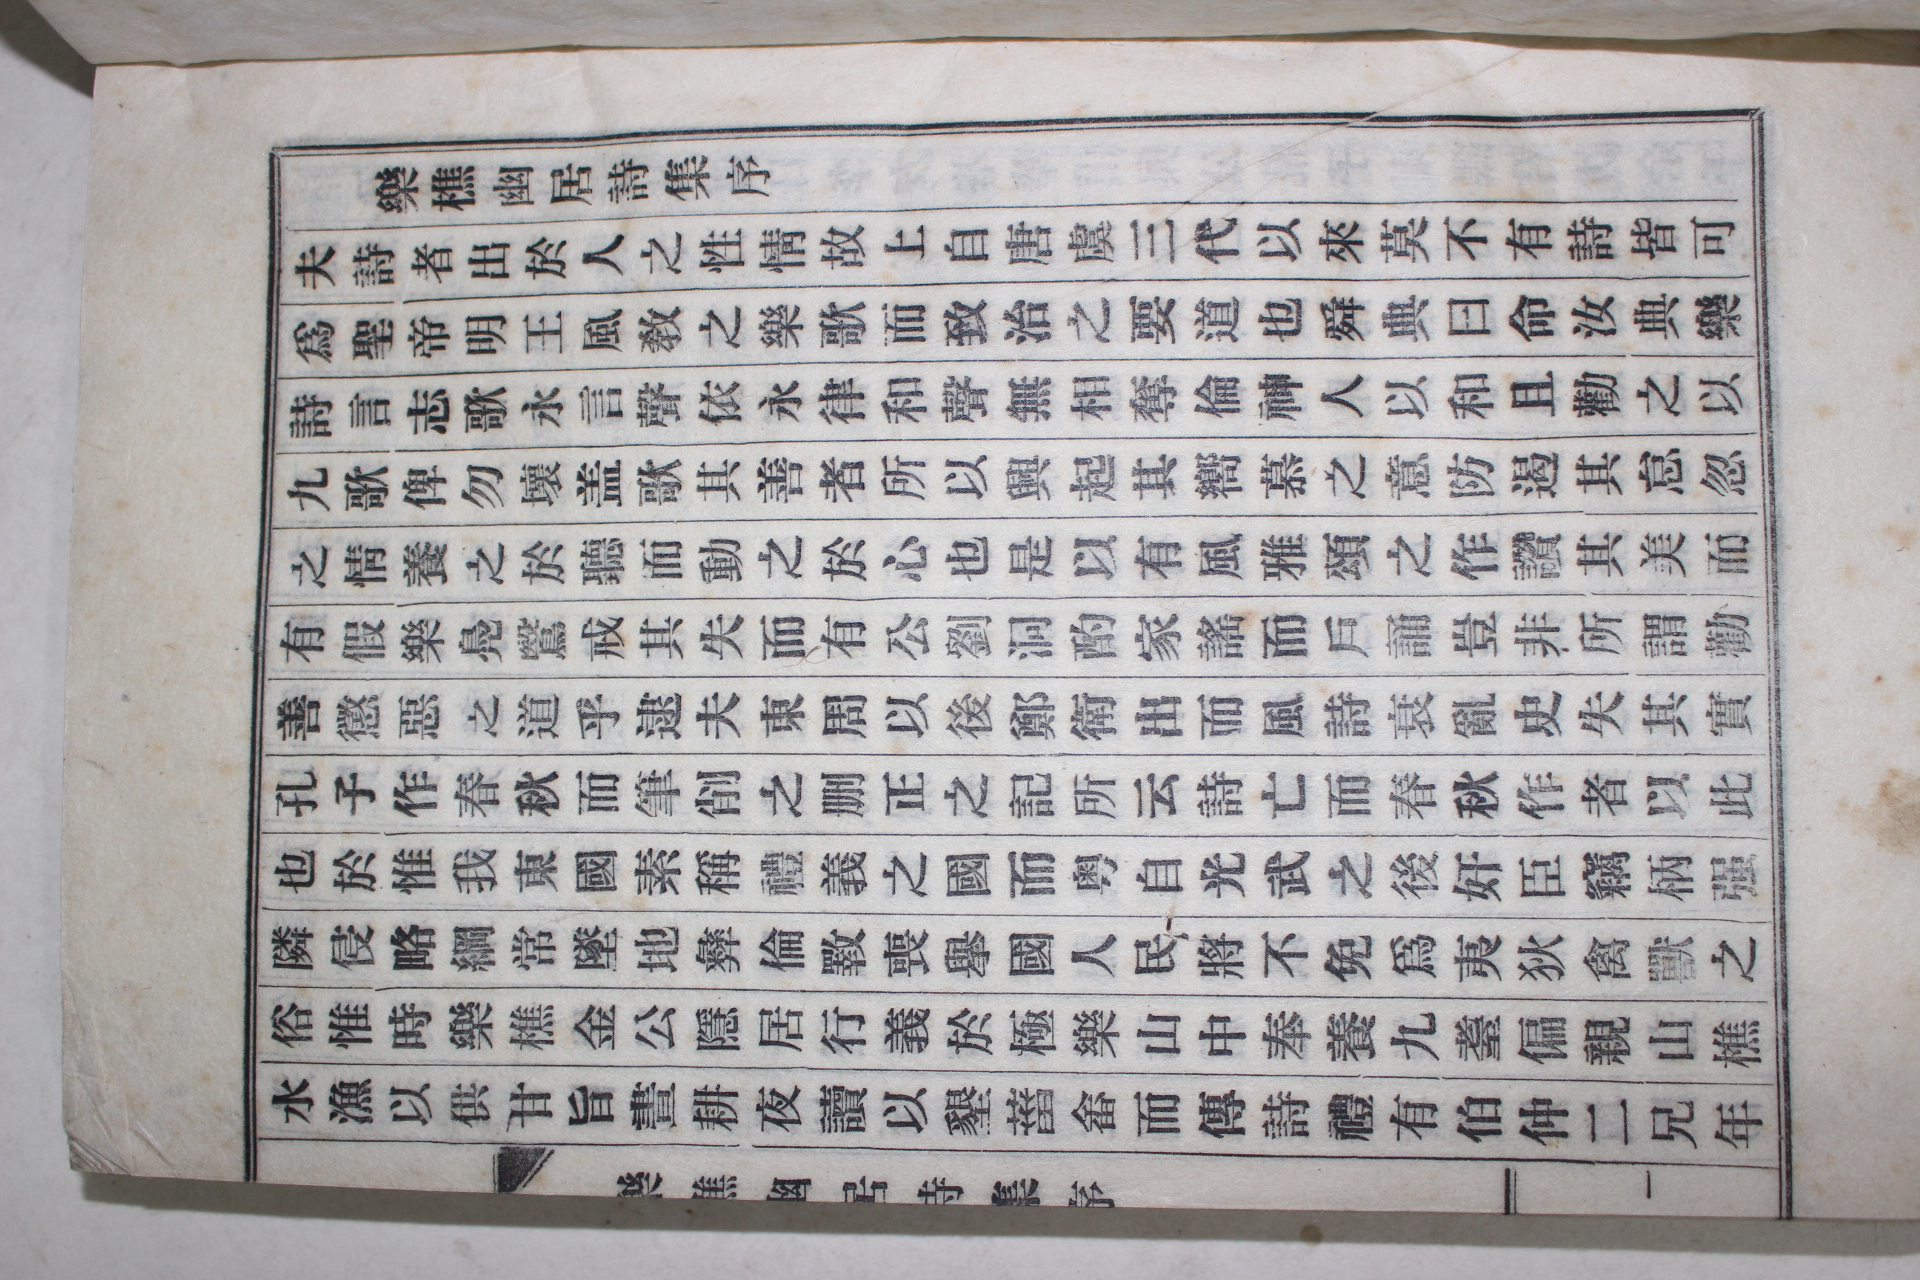 樂樵幽居詩集序
夫詩者出於人之性情故上自唐虞三代以來莫不有詩皆可
爲聖帝明王風敎之樂歌而致治之要道也舜典曰命汝典樂
詩言志歌永言聲依永律和聲無相奪倫神人以和且勸之以
九歌俾勿壞盖歌其善者所以興起其嚮慕之意防遏其怠忽
之情養之於聽而動之於心也是以有風雅頌之作讚其美而
有假樂鳧鷖戒其失而有公劉泂酌家謠而戶誦豈非所謂勸
善懲惡之道乎逮夫東周以後鄭衛出而風詩衰亂史失其實
孔子作春秋而筆削之刪正之記所云詩亡而春秋作者以此
也於惟我東國素稱禮義之國而粤自光武之後奸臣竊柄强
隣侵略綱常墜地彝倫斁喪擧國人民將不免爲夷狄禽獸之
俗惟時樂樵金公隱居行義於極樂山中奉養九耋偏親山樵
水漁以供甘旨晝耕夜讀以墾菑畬而傳詩禮有伯仲二兄年
樂樵幽居詩集序
一